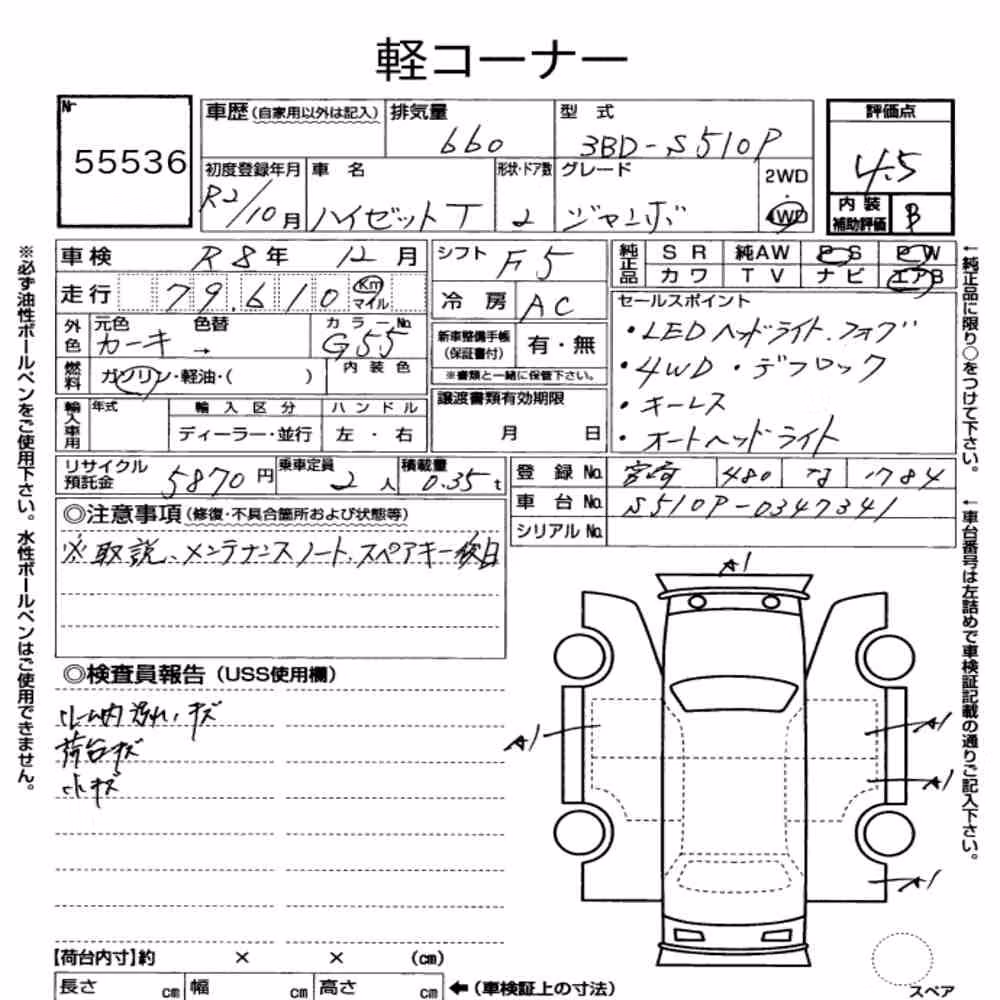 軽コーナー
Nr
55536
車歴 (自家用以外は記入)
排気量
660
型 式
3BD-S510P
評価点
4.5
初度登録年月
R2/10月
車 名
ハイゼットT
形状・ドア数
2
グレード
ジャンボ
2WD
・
4WD
内 装
補助評価
B
車検 R8年 12月
シフト F5
純正品
S R 純AW P S P W
カワ T V ナビ エアB
走行 79,610 Km
マイル
冷 房 AC
セールスポイント
・LEDヘッドライト.フォグ
・4WD・デフロック
・キーレス
・オートヘッドライト
外色
元色 色替
カーキ →
カラーNo.
G55
新車整備手帳
(保証書付)
有・無
※書類と一緒に保管下さい。
燃料
ガソリン・軽油・( )
内 装 色
輸入車用
年式
輸 入 区 分
ディーラー・並行
ハ ン ド ル
左 ・ 右
譲渡書類有効期限
月 日
リサイクル
預託金
5870 円
乗車定員 2 人
積載量
0.35 t
登 録 No. 宮崎 480 な 1784
車 台 No. S510P-0347341
シリアル No.
◎注意事項 (修復・不具合箇所および状態等)
※取説、メンテナンスノート、スペアキー後日
◎検査員報告 (USS使用欄)
ルーム内汚れ、キズ
荷台キズ
小キズ
A1
A1
A1
A1
A1
【荷台内寸】約 × × (cm)
長さ cm 幅 cm 高さ cm
←(車検証上の寸法)
スペア
※必ず油性ボールペンをご使用下さい。水性ボールペンはご使用できません。
←純正品に限り○をつけて下さい。
←車台番号は左詰めで車検証記載の通りご記入下さい。